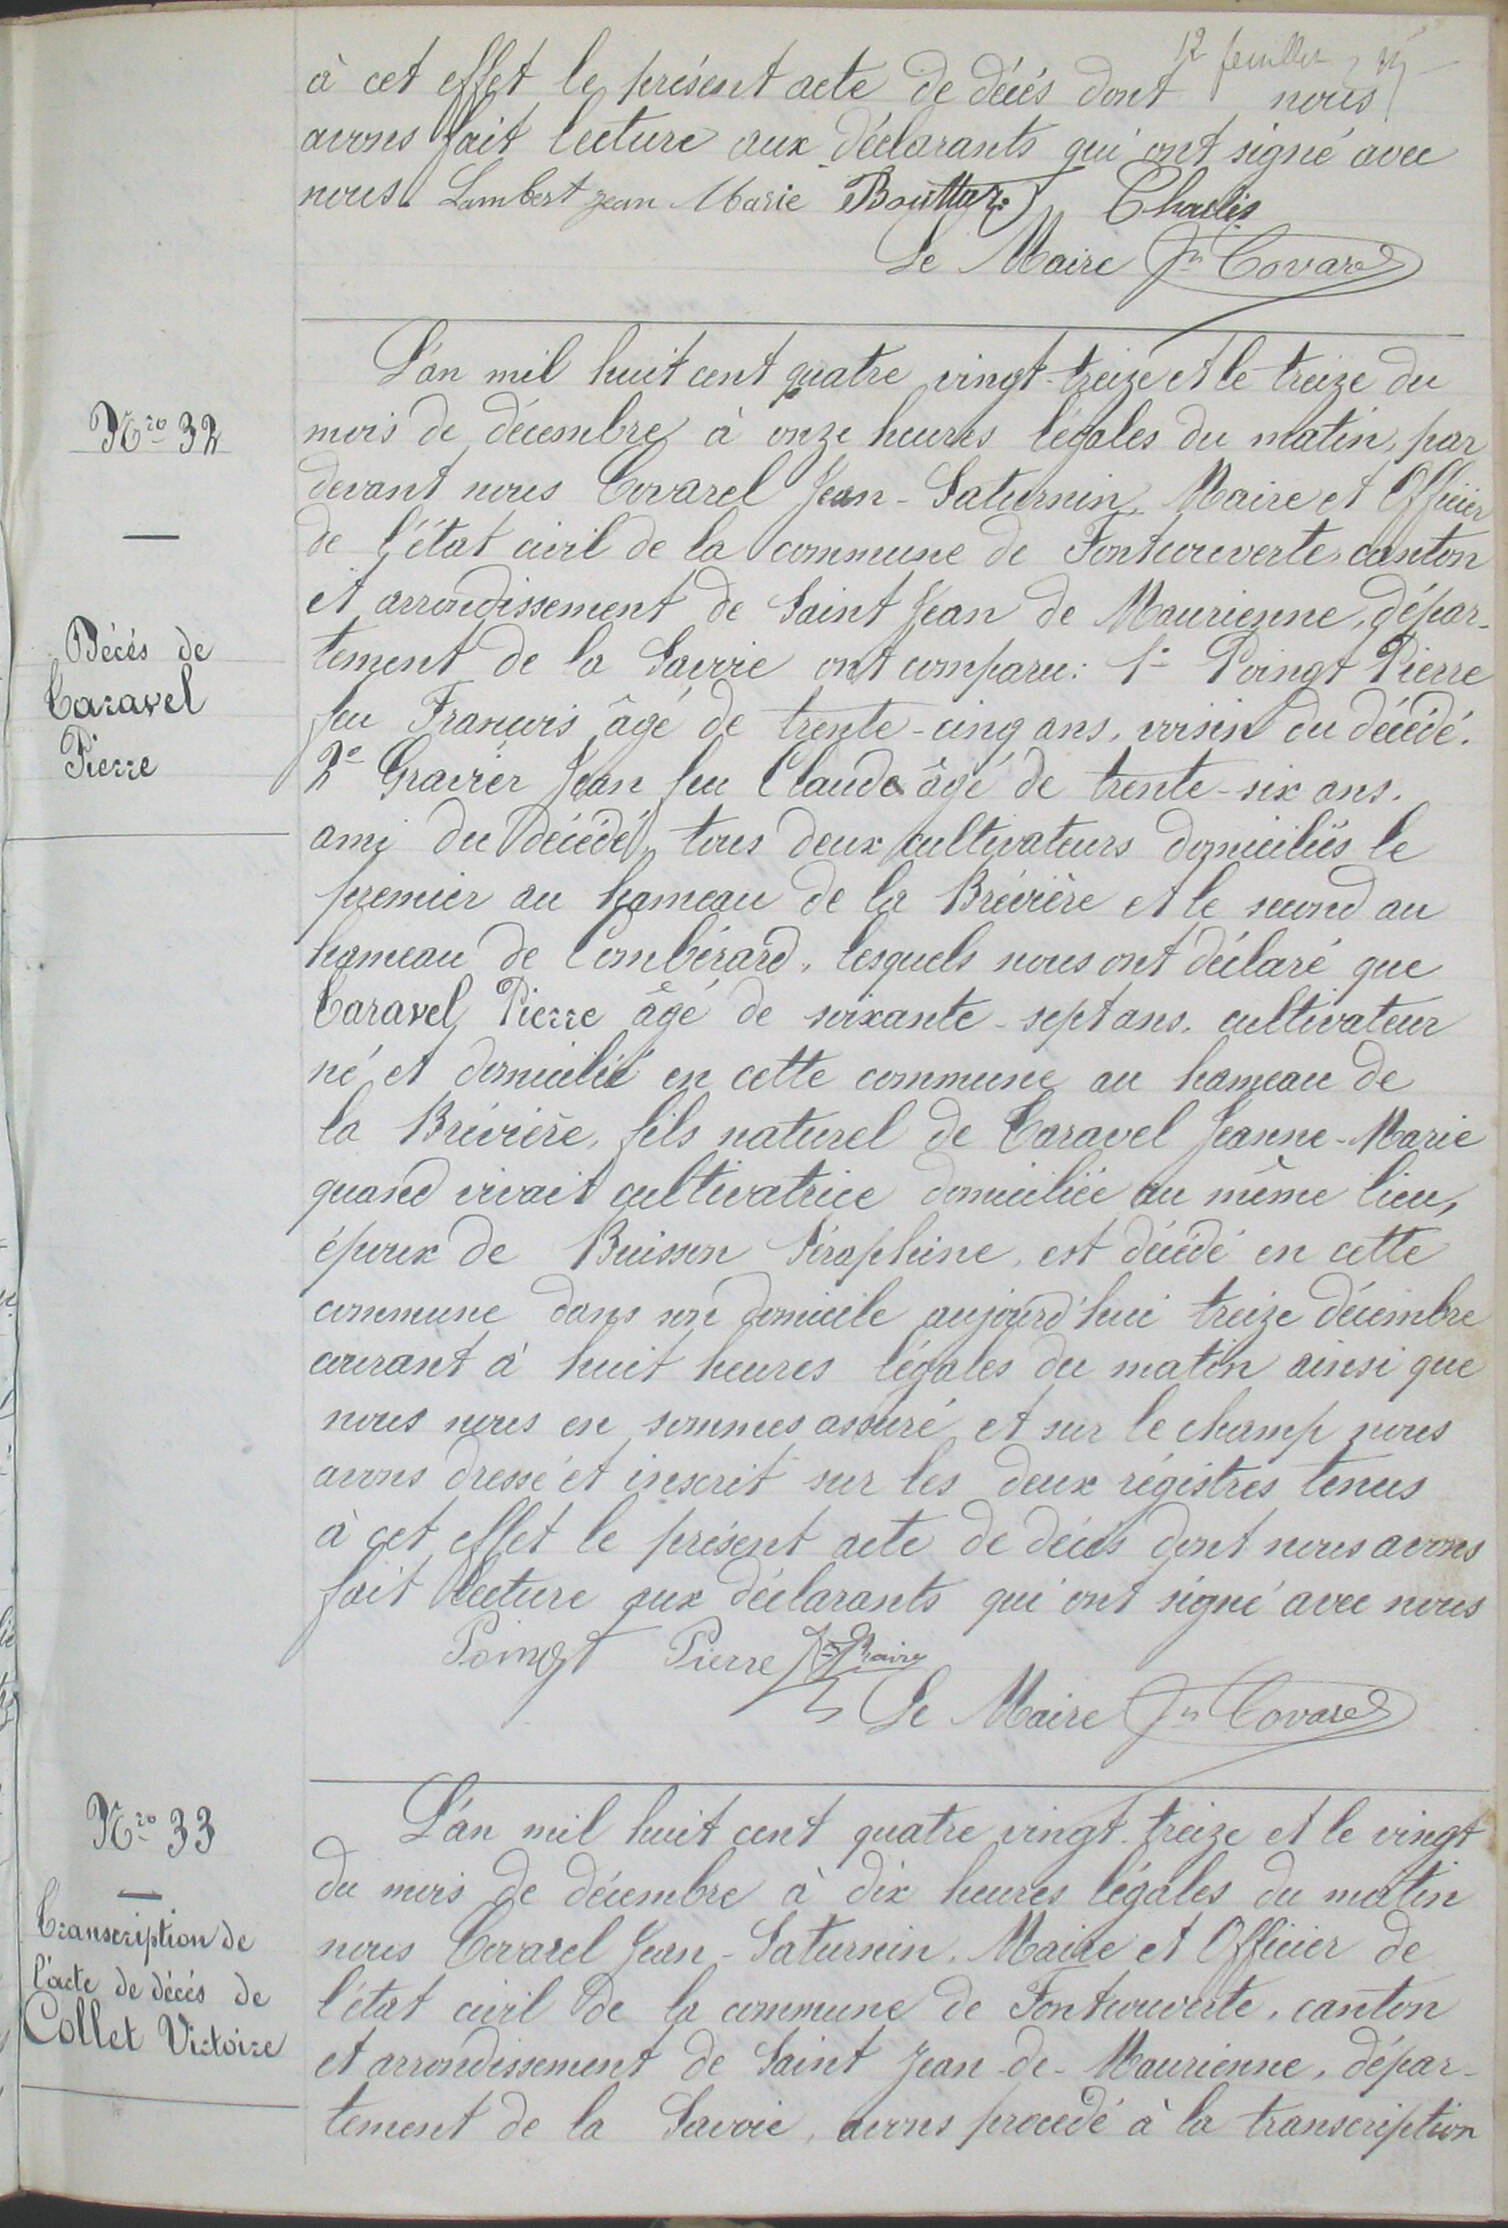 12 feuillet
à cet effet le présent acte de décés dont nous
avons fait lecture aux déclarants qui ont signé avec
nous. Lambert Jean Marie Bouttaz Charles
Le Maire Jn Covarel
Nro 32
Décés de
Caravel
Pierre
L'an mil huit cent quatre vingt-treize et le treize du
mois de décembre à onze heures légales du matin, par
devant nous Covarel Jean-Saturnin, Maire et Officier
de l'état civil de la commune de Fontcouverte, canton
et arrondissement de Saint Jean de Maurienne, dépar-
tement de la Savoie ont comparu: 1° Poingt Pierre
feu François âgé de trente-cinq ans, voisin du décédé.
2° Gravier Jean feu Claude âgé de trente-six ans.
ami du décédé, tous deux cultivateurs domiciliés le
premier au hameau de la Brévière et le second au
hameau de Combérard, lesquels nous ont déclaré que
Caravel Pierre âgé de soixante-sept ans. cultivateur
né et domicilié en cette commune au hameau de
la Brévière, fils naturel de Caravel Jeanne-Marie
quand vivait cultivatrice domiciliée au même lieu,
époux de Buisson Séraphine, est décédé en cette
commune dans son domicile aujourd'hui treize décembre
courant à huit heures légales du matin ainsi que
nous nous en sommes assuré et sur le champ nous
avons dressé et inscrit sur les deux régistres tenus
à cet effet le présent acte de décés dont nous avons
fait lecture aux déclarants qui ont signé avec nous
Poingt Pierre
Le Maire Jn Covarel
Nro 33
Transcription de
l'acte de décés de
Collet Victoire
L'an mil huit cent quatre vingt-treize et le vingt
du mois de décembre à dix heures légales du matin
nous Covarel Jean-Saturnin. Maire et Officier de
l'état civil de la commune de Fontcouverte, canton
et arrondissement de Saint Jean-de-Maurienne, dépar-
tement de la Savoie, avons procédé à la transcription